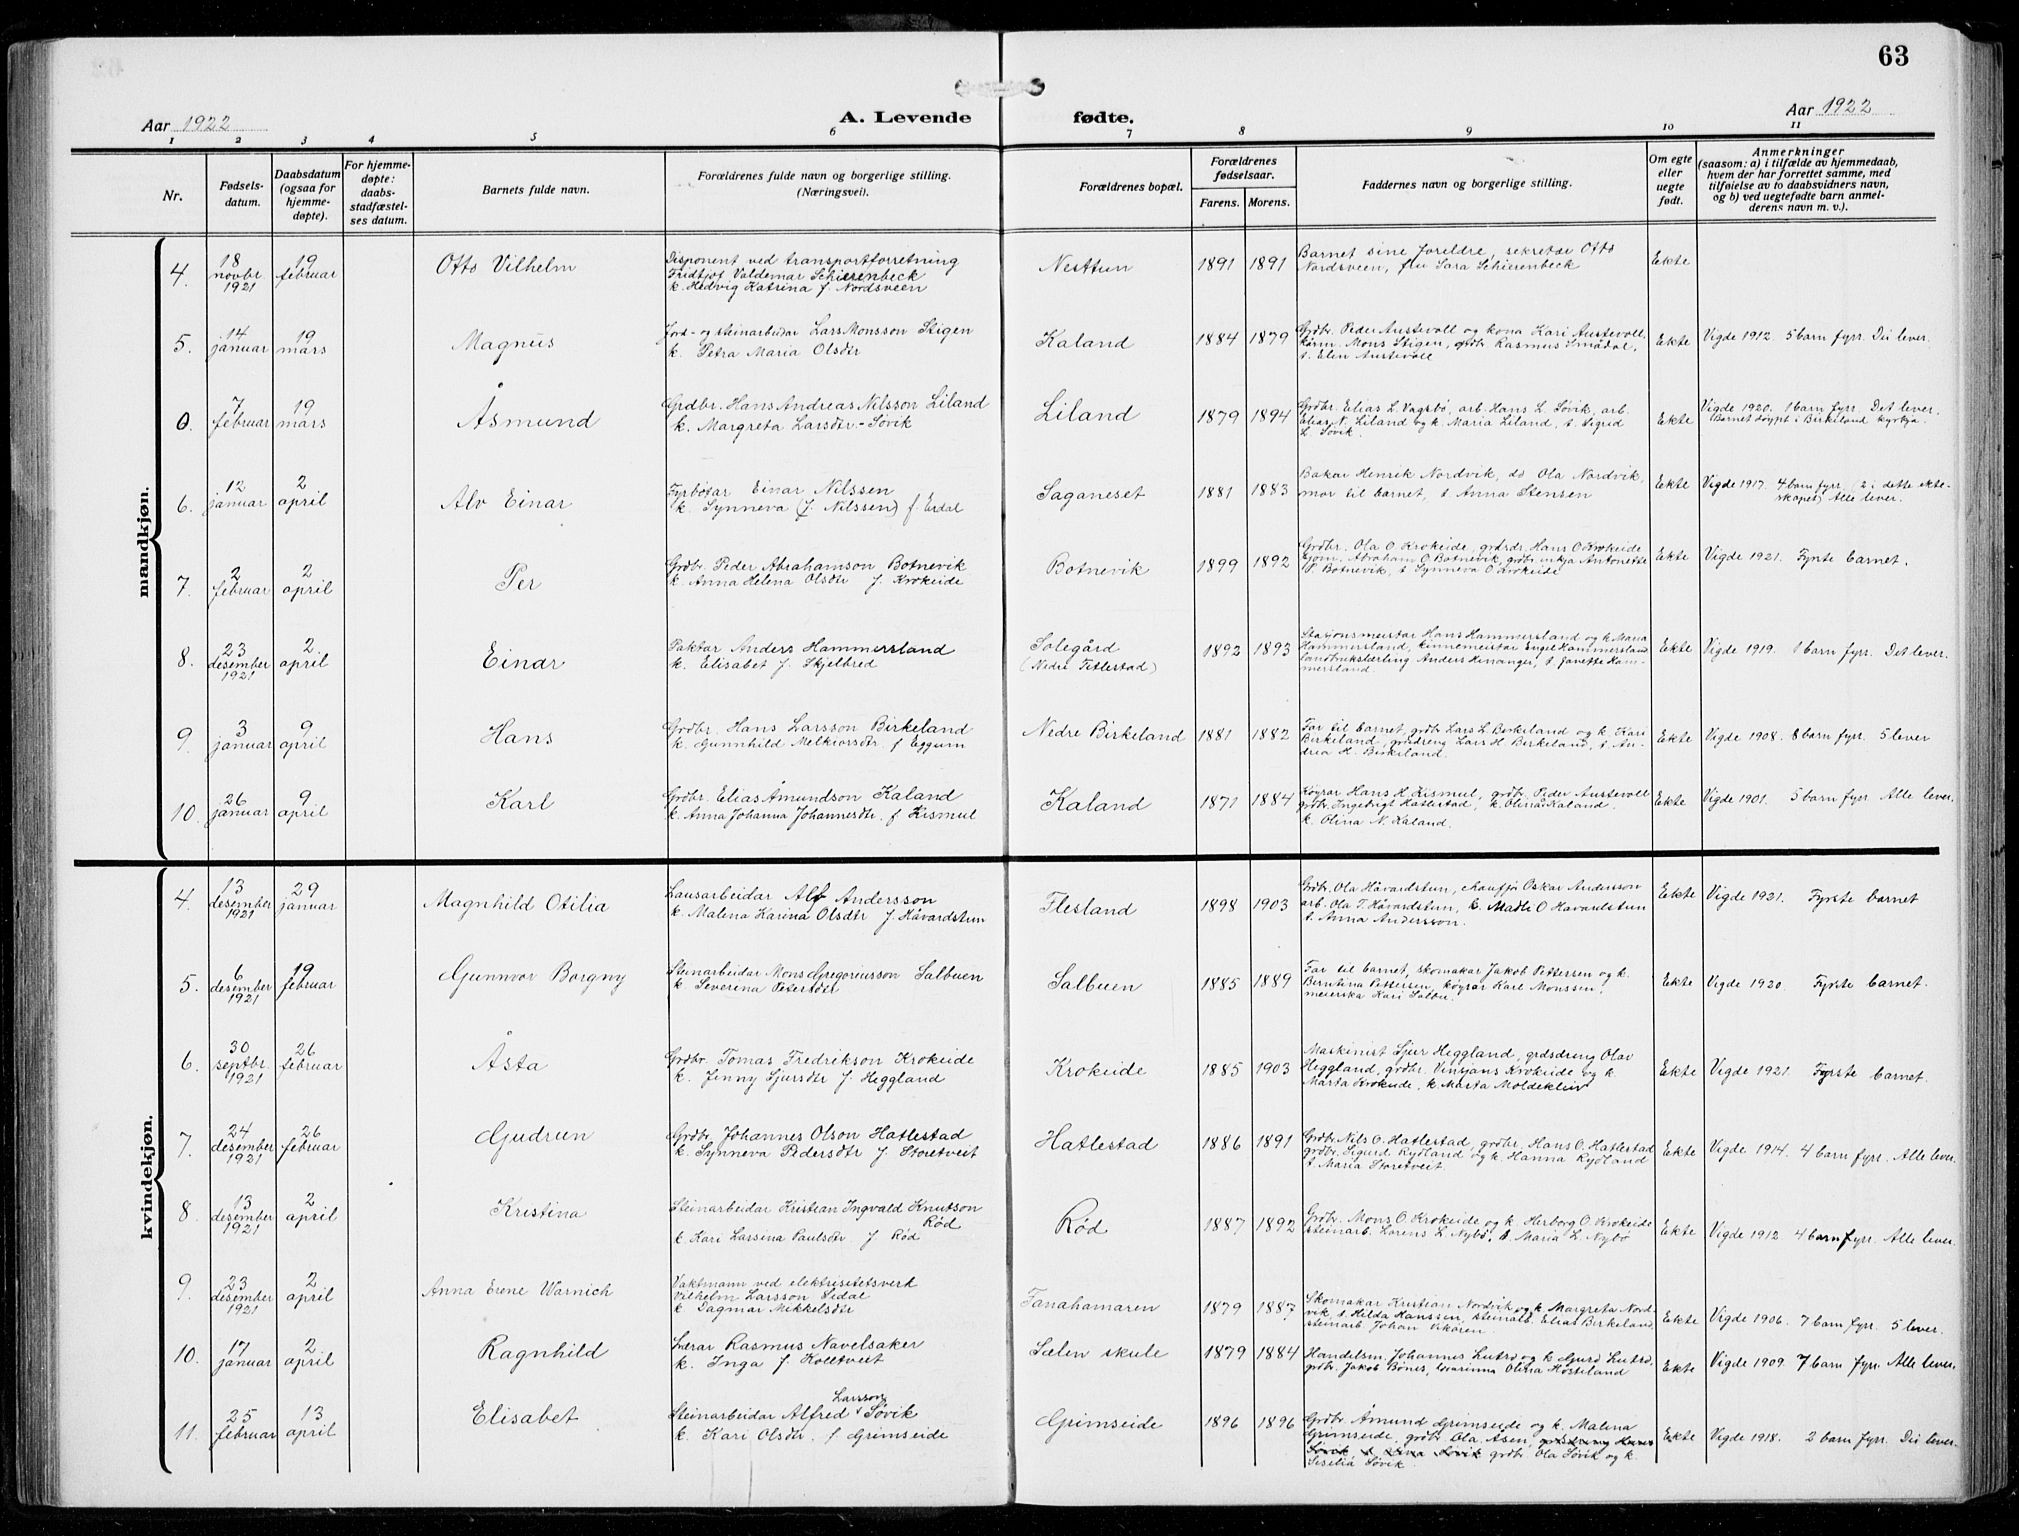 63
Aar 1922
A. Levende fødte.
Aar 1922
1 2 3 4 5 6 7 8 9 10 11
Nr.
Fødsels-
datum.
Daabsdatum
(ogsaa for
hjemme-
døpte).
For hjemme-
døpte:
daabs-
stadfæstel-
ses datum.
Barnets fulde navn.
Forældrenes fulde navn og borgerlige stilling.
(Næringsvei).
Forældrenes bopæl.
Forældrenes
fødselsaar.
Farens. Morens.
Faddernes navn og borgerlige stilling.
Om egte
eller
uegte
født.
Anmerkninger
(saasom: a) i tilfælde av hjemmedaab,
hvem der har forrettet samme, med
tilføielse av to daabsvidners navn,
og b) ved uegtefødte barn anmel-
derens navn m. v.).
mandkjøn.
4.
18
novbr
1921
19
februar
Otto Vilhelm
Disponent ved transportforretning
Fridtjof Valdemar Schierenbeck
k. Hedvig Katrina f. Nordsveen
Nesttun
1891 1891
Barnet sine foreldre, sekretær Otto
Nordsveen, fru Sara Schierenbeck
Ekte
5.
14
januar
19
mars
Magnus
Jord- og steinarbeidar Lars Monsson Stigen
k. Petra Maria Olsdtr
Kaland
1884 1879
Grdbr. Peder Austevoll og kona Kari Austevoll,
Mons Stigen, grdbr Rasmus Smådal,
t. Elen Austevoll
Ekte
Vigde 1912. 5 barn fyrr. Dei lever.
0.
7
februar
19
mars
Åsmund
Grdbr. Hans Andreas Nilsson Liland
k. Margreta Larsdtr - Søvik
Liland
1879 1894
Grdbr. Elias L. Vagsbø, arb. Hans L. Søvik, arb.
Elias N. Liland og k. Maria Liland, t. Sigrid
L. Søvik.
Ekte
Vigde 1920. 1 barn fyrr. Det lever.
Barnet døypt i Birkeland kyrkja.
6.
12
januar
2
april
Alv Einar
Fyrbøtar Einar Nilssen
k. Synneva (f. Nilssen) f. Erdal
Saganeset
1881 1883
Bakar Henrik Nordvik, do Ola Nordvik,
mor til barnet, t. Anna Stensen
Ekte
Vigde 1917. 4 barn fyrr, (2 i dette ekte-
skapet) Alle lever.
7.
2
februar
2
april
Per
Grdbr. Peder Abrahamson Botnevik
k. Anna Helena Olsdtr f. Krokeide
Botnevik
1899 1892
Grdbr. Ola O. Krokeide, grdsdr. Hans O Krokeide
Abraham O Botnevik, grdbr. enkja Antonette
P. Botnevik, t. Synneva O Krokeide
Ekte
Vigde 1921. Fyrste barnet.
8.
23
desember
1921
2
april
Einar
Faktor Anders Hammersland
k. Elisabet f. Skjelbred
Solegård
(Nedre Titlestad)
1892 1893
Stasjonsmeistar Hans Hammersland og k. Maria
Hammersland, kinnemeistar Engel Hammersland
landbrukslærling Anders Hananger, t. Janette Ham-
mersland.
Ekte
Vigde 1919. 1 barn fyrr. Det lever.
9.
3
januar
9
april
Hans
Grdbr. Hans Larsson Birkeland
k. Gunnhild Melkiorsdtr. f. Eggum
Nedre Birkeland
1881 1882
Far til barnet, grdbr Lars L Birkeland og k. Kari
Birkeland, grdreng Lars H. Birkeland, t. An-
drea H. Birkeland.
Ekte
Vigde 1908. 8 barn fyrr. 5 lever
10.
26
januar
9
april
Karl
Grdbr. Elias Åmundson Kaland
k. Anna Johanna Johannesdtr. f Kismul
Kaland
1871 1884
Køyrar Hans H. Kismul, grdbr. Peder Austevoll
grdbr. Ingebrigt Hatlestad, k. Olina Kaland.
k. Olina N. Kaland.
Ekte
Vigde 1901. 5 barn fyrr. Alle lever.
kvindekjøn.
4.
13
desember
1921
29
januar
Magnhild Otilia
Lausarbeidar Alf Andersson
k. Malena Karina Olsdtr f. Håvardstun
Flesland
1898 1903
Grdbr. Ola Håvardstun, chaufför Oskar Andersson
arb. Ola T. Håvardstun, k. Madli O Håvardstun
t. Anna Andersson.
Ekte
Vigde 1921. Fyrste barnet
5.
6
desember
1921
19
februar
Gunnvor Borgny
Steinarbeidar Mons Gregoriusson Salbuen
k. Severina Petersdtr
Salbuen
1885 1889
Far til barnet, skomakar Jakob Pettersen og k.
Berntina Pettersen, køyrar Karl Monssen,
meierska Kari Salbu.
Ekte
Vigde 1920. Fyrste barnet.
6.
30
septbr.
1921
26
februar
Åsta
Grdbr. Tomas Fredrikson Krokeide
k. Jenny Sjursdtr f. Heggland
Krokeide
1885 1903
Maskinist Sjur Heggland, grdsdreng Olav
Heggland, grdbr. Vinsjans Krokeide og k.
Marta Krokeide, k Marta Moldekleiv
Ekte
Vigde 1921. Fyrste barnet.
7.
24
desember
1921
26
februar
Gudrun
Grdbr. Johannes Olson Hatlestad
k. Synneva Pedersdtr f. Storetveit
Hatlestad
1886 1891
Grdbr. Nils O. Hatlestad, grdbr. Hans O. Hatlestad
grdbr. Sigurd Rydland og k. Hanna Rydland
t. Maria Storetveit.
Ekte
Vigde 1914. 4 barn fyrr. Alle lever.
8.
13
desember
1921
2
april
Kristina
Steinarbeidar Kristian Ingvald Knutson
Rød
k. Kari Larsina Paulsdtr f Rød
Rød
1887 1892
Grdbr. Mons O. Krokeide og k. Herborg O. Krokeide
steinarb. Lorens L. Nybø, t. Maria L. Nybø
Ekte
Vigde 1912. 4 barn fyrr. Alle lever.
9.
23
desember
1921
2
april
Anna Erene Warnich
Vaktmann ved elektrisitetsverk
Vilhelm Larsson Sidal
k Dagmar Mikkelsdtr
Fanahamaren
1879 1887
Skomakar Kristian Nordvik og k. Margreta Nord-
vik, t. Hilda Hanssen, steinarb. Elias Birkeland,
steinarb. Johan Vikøren.
Ekte
Vigde 1906. 7 barn fyrr. 5 lever.
10.
17
januar
2
april
Ragnhild
Lærar Rasmus Navelsaker
k. Inga f. Kolltveit
Sælen skule
1879 1884
Handelsm. Johannes Lutro og k Gjurd Lutro,
grdbr. Jakob Bønes, lærarinna Olina Høsteland
Ekte
Vigde 1909. 7 barn fyrr. Alle lever.
11.
25
februar
13
april
Elisabet
Larsson
Steinarbeidar Alfred Søvik
k. Kari Olsdtr. f Grimseide
Grimseide
1896 1896
Grdbr. Åmund Grimseide og k. Malena
Grimseide, grdbr. Ola Åsen, grdsdreng Hans
Søvik t. Lina Søvik grdbr. Ola Søvik og k.
Siselia Søvik.
Ekte
Vigde 1918. 2 barn fyrr. Dei lever.